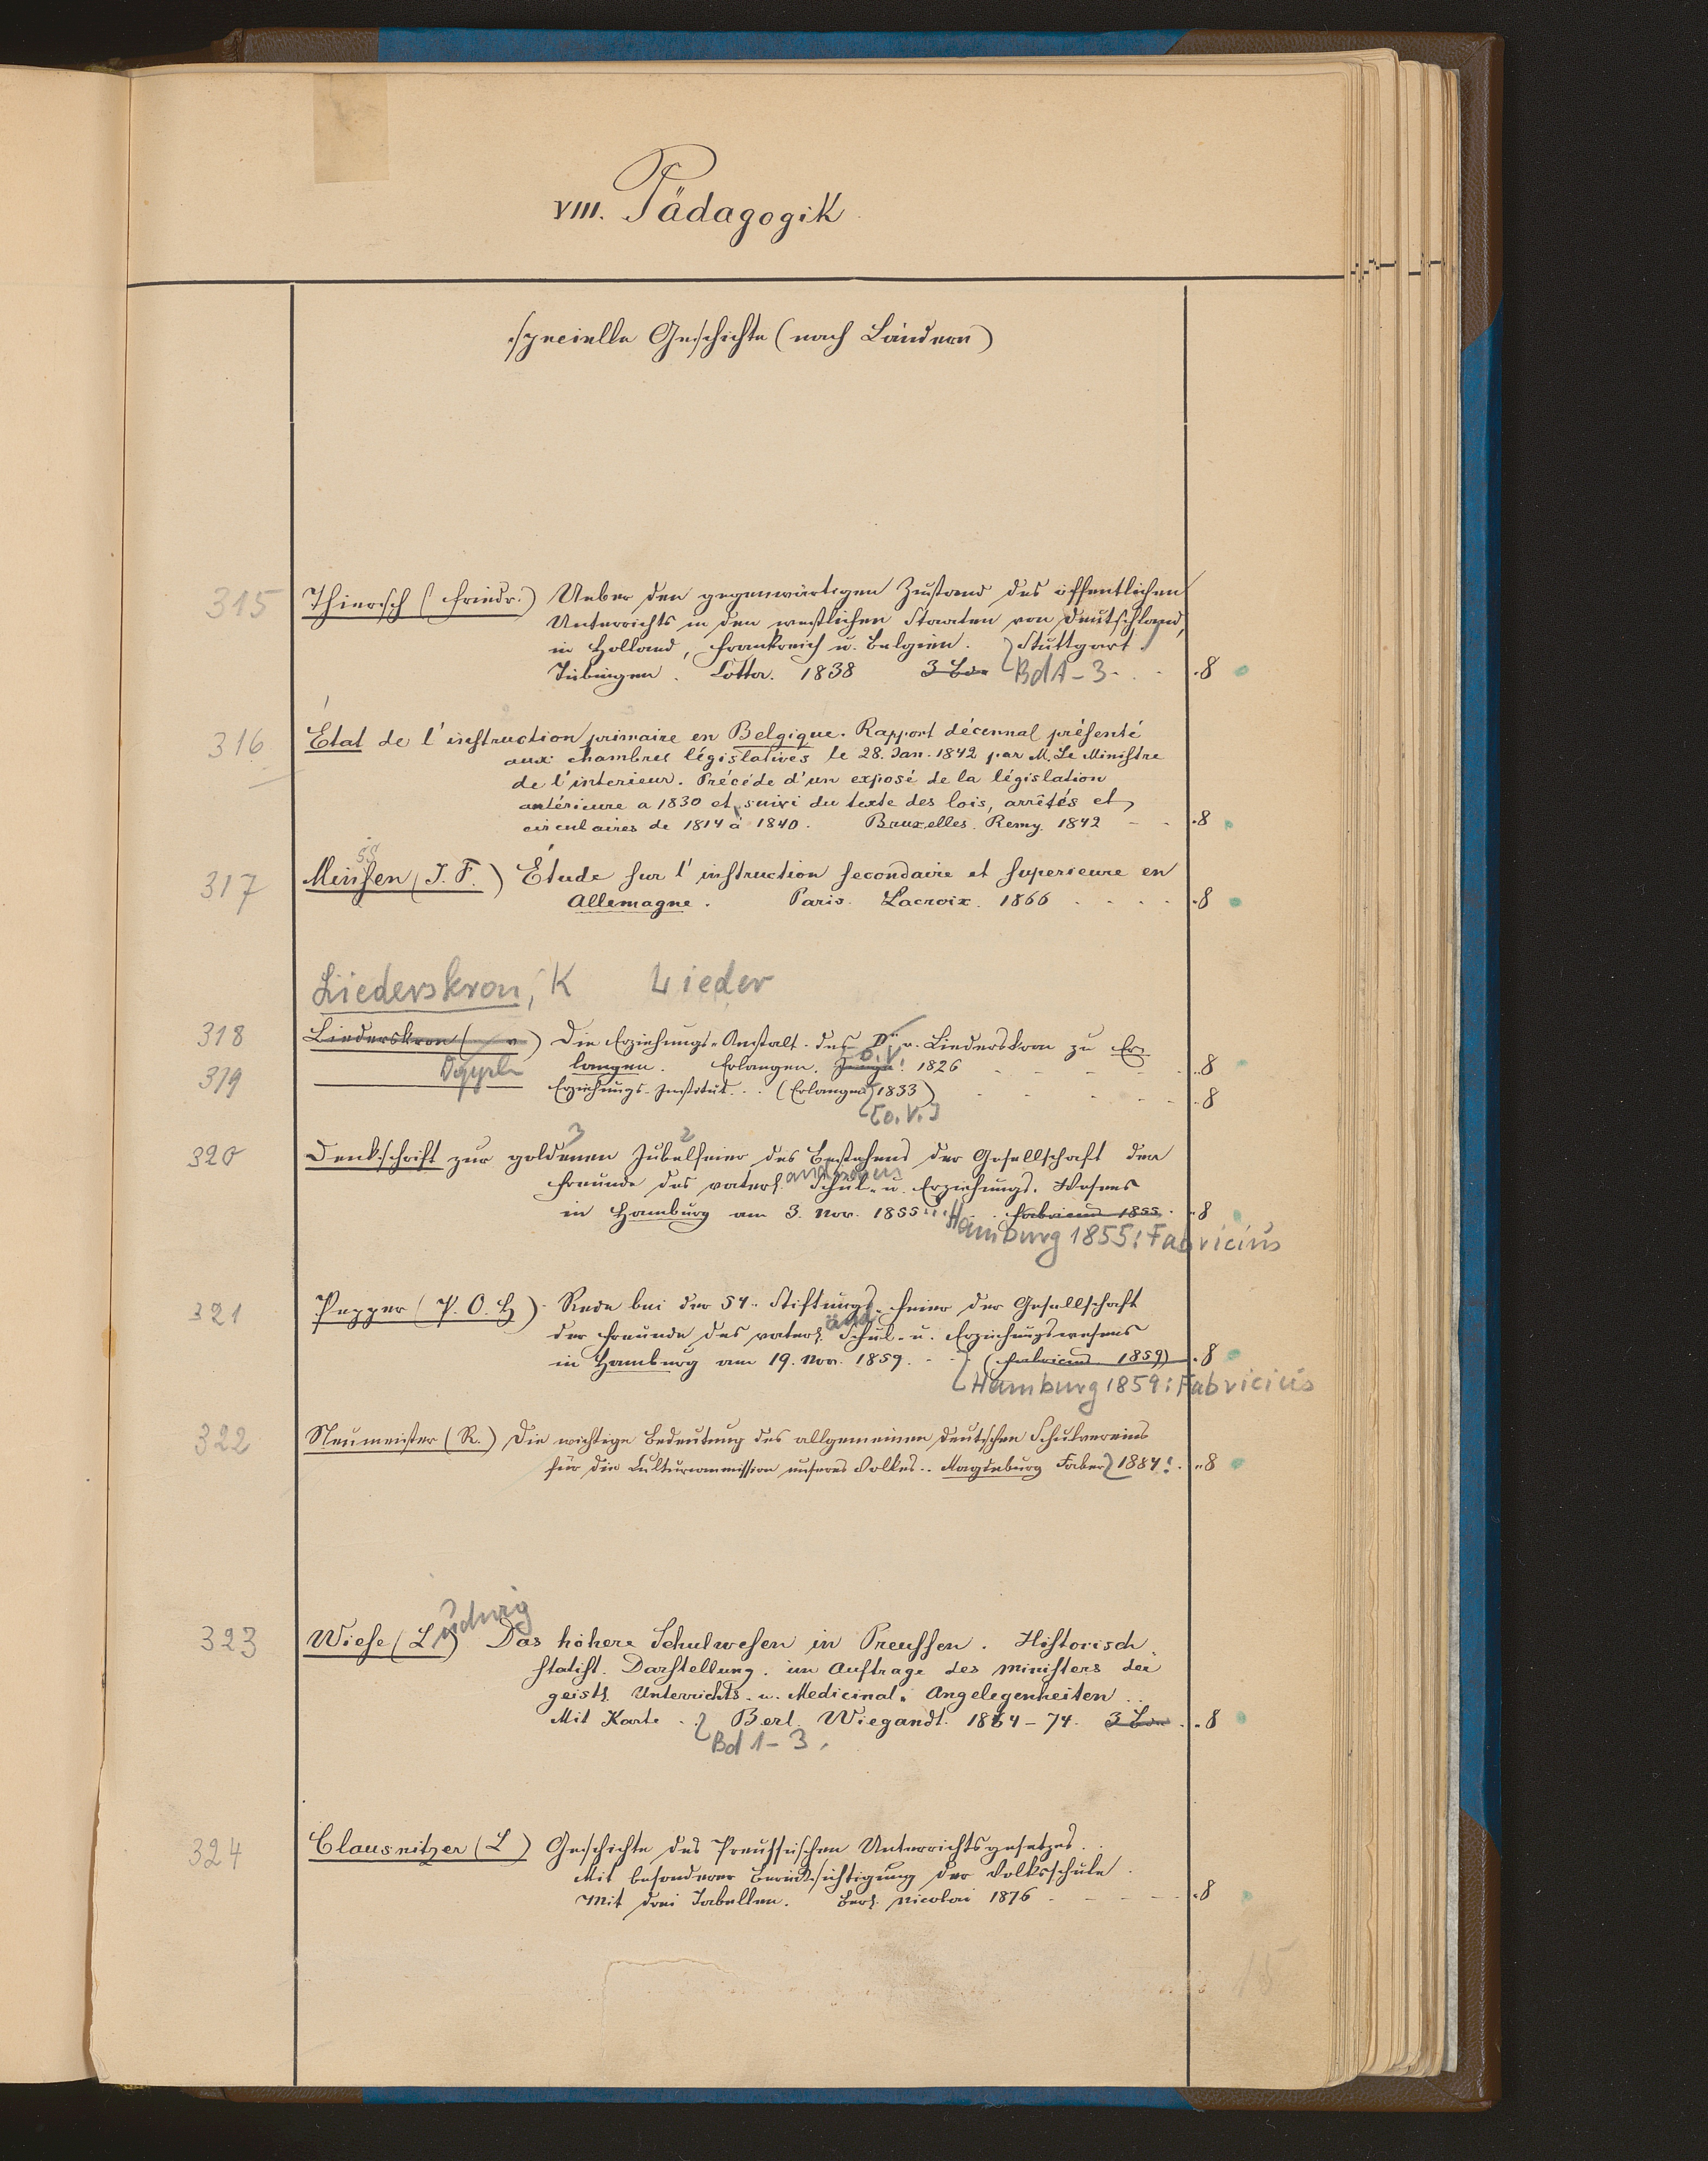 VIII. Pädagogik
specielle Geschichte (nach Ländern)
315 Thiersch (Friedr.) Ueber den gegenwärtigen Zustand des öffentlichen
Unterrichts in den westlichen Staaten von Deutschland,
in Holland, Frankreich u. Belgien. Stuttgart
Tübingen. Cotta. 1838 3 Bde Bd 1-3 8
316 État de l'instruction primaire en Belgique. Rapport décennal présenté
aux chambres législatives le 28. Jan. 1842 par M. Le Ministre
de l'interieur. Précéde d'un exposé de la législation
antérieure a 1830 et suivi du texte des lois, arrêtés et
circulaires de 1814 à 1840. Bruxelles. Remy. 1842 8
ss
317 Minssen (J. F.) Étude sur l'instruction secondaire et superieure en
Allemagne. Paris. Lacroix. 1866 8
Liederskron, K Lieder
318 Liederskron ( v. ) Die Erziehungs-Anstalt des Dr v. Liederskron zu Er-
langen. Erlangen. o.V. 1826 8
319 Doppel Erziehungs-Institut... (Erlangen 1833) 8
[o.V.]
3 2
320 Denkschrift zur goldenen Jubelfeier des Bestehens der Gesellschaft der
Freunde des vaterl. Schul- u. Erziehungs-Wesens
in Hamburg am 3. Nov. 1855 Fabricius 1855 8
Hamburg 1855: Fabricius
321 Pepper (P. O. H) Rede bei der 54. Stiftungs-Feier der Gesellschaft
der Freunde des vaterl. Schul- u. Erziehungswesens
in Hamburg am 19. Nov. 1859. (Fabricius 1859) 8
Hamburg 1859: Fabricius
322 Neumeister (R.) Die wichtige Bedeutung des allgemeinen deutschen Schulvereins
für die Culturmission unseres Volkes.. Magdeburg Faber 1884. 8
udwig
323 Wiese (L) Das höhere Schulwesen in Preussen. Historisch
statist. Darstellung. im Auftrage des Ministers der
geistl. Unterrichts- u. Medicinal-Angelegenheiten
Mit Karte. Berl. Wiegandt. 1864-74. 3 Bde 8
Bd 1-3.
324 Clausnitzer (L) Geschichte des Preussischen Unterrichtsgesetzes.
Mit besonderer Berücksichtigung der Volksschule.
Mit drei Tabellen. Berl. Nicolai 1876 8
15